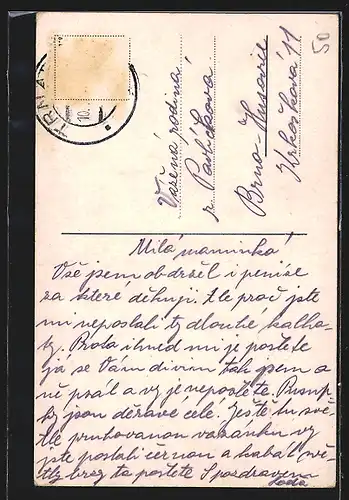 50
TRNAVA
10.
Vážená rodina
r. Pavlíčkova
Brno-Husovice
Krkoškova 11
Milá maminko!
Vše jsem obdržel i peníze
za které děkuji. Ale proč jste
mi neposlali ty dlouhé kalho-
ty. Proto ihned mi je pošlete
já se Vám divím tak jsem a
ně psal a vy je nepošlete.
ky jsou děravé celé. Ještě tu svě-
tle pruhovanou vazánku vy
jste poslali černou a haba svě-
tlý brzy to pošlete S pozdravem